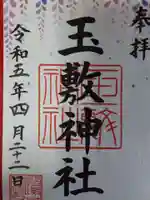 奉拝
玉敷神社
令和五年四月二十二日